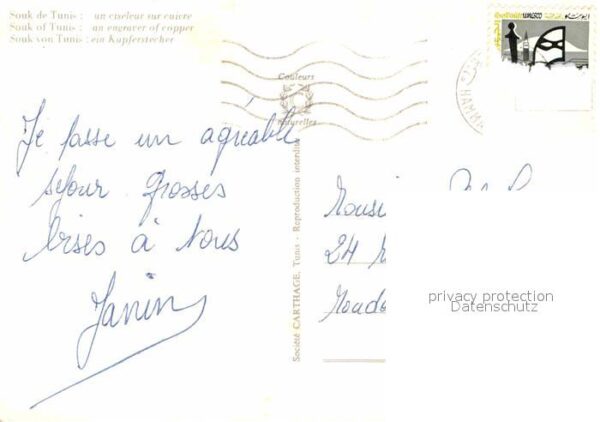 Souk de Tunis : un ciseleur sur cuivre
Souk of Tunis : an engraver of copper
Souk von Tunis : ein Kupferstecher
UNESCO
HAMMA
Couleurs
Naturelles
Je passe un agréable
séjour grosses
bises à tous
Janin
Société CARTHAGE, Tunis - Reproduction interdite
Monsi
24
privacy protection
Datenschutz